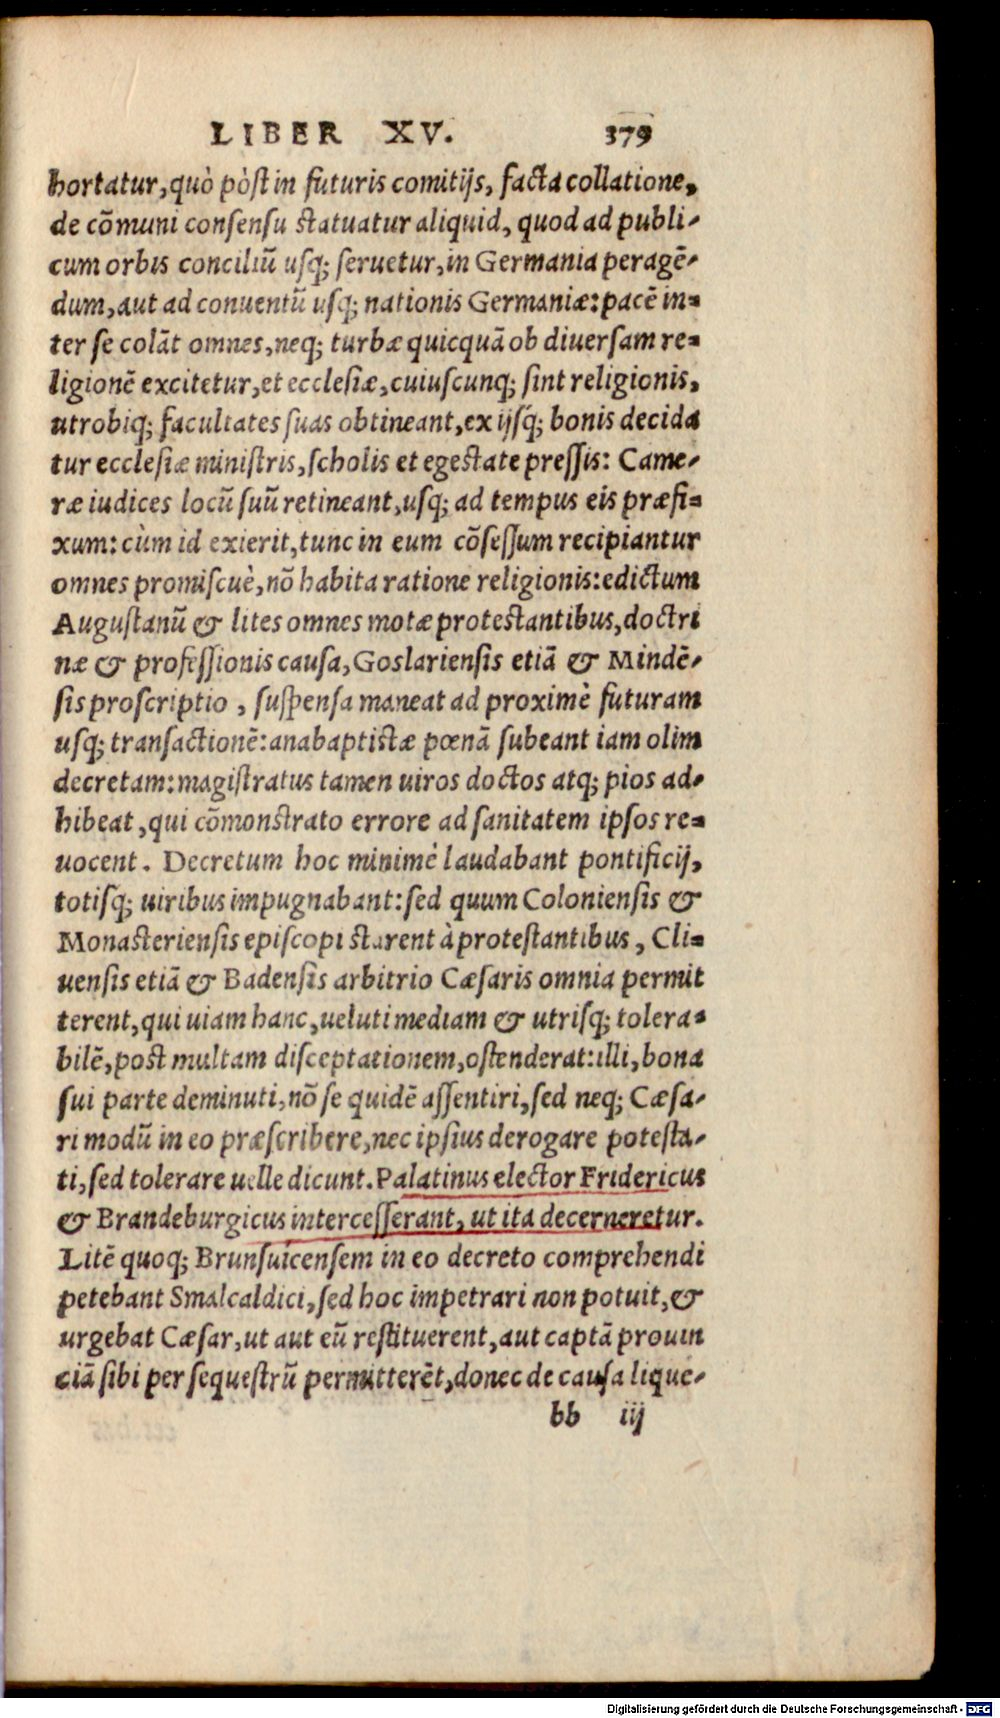 LIBER XV. 379
hortatur, quò pòst in futuris comitijs, facta collatione,
de cõmuni consensu statuatur aliquid, quod ad publi-
cum orbis conciliũ usq; seruetur, in Germania peragẽ-
dum, aut ad conuentũ usq; nationis Germaniæ: pacẽ in-
ter se colãt omnes, neq; turbæ quicquã ob diuersam re-
ligionẽ excitetur, et ecclesiæ, cuiuscunq; sint religionis,
utrobiq; facultates suas obtineant, ex ijsq́; bonis decida
tur ecclesiæ ministris, scholis et egestate pressis: Came-
ræ iudices locũ suũ retineant, usq; ad tempus eis præfi-
xum: cùm id exierit, tunc in eum cõsessum recipiantur
omnes promiscuè, nõ habita ratione religionis: edictum
Augustanũ & lites omnes motæ protestantibus, doctri
næ & professionis causa, Goslariensis etiã & Mindẽ-
sis proscriptio, suspensa maneat ad proximè futuram
usq; transactionẽ: anabaptistæ pœnã subeant iam olim
decretam: magistratus tamen uiros doctos atq; pios ad-
hibeat, qui cõmonstrato errore ad sanitatem ipsos re-
uocent. Decretum hoc minimè laudabant pontificij,
totisq; uiribus impugnabant: sed quum Coloniensis &
Monasteriensis episcopi starent à protestantibus, Cli-
uensis etiã & Badensis arbitrio Cæsaris omnia permit
terent, qui uiam hanc, ueluti mediam & utrisq; tolera-
bilẽ, post multam disceptationem, ostenderat: illi, bona
sui parte deminuti, nõ se quidẽ assentiri, sed neq; Cæsa-
ri modũ in eo præscribere, nec ipsius derogare potesta-
ti, sed tolerare uelle dicunt. Palatinus elector Fridericus
& Brandeburgicus intercesserant, ut ita decerneretur.
Litẽ quoq; Brunsuicensem in eo decreto comprehendi
petebant Smalcaldici, sed hoc impetrari non potuit, &
urgebat Cæsar, ut aut eũ restituerent, aut captã prouin
ciã sibi per sequestrũ permitterẽt, donec de causa lique-
bb iij
Digitalisierung gefördert durch die Deutsche Forschungsgemeinschaft - DFG